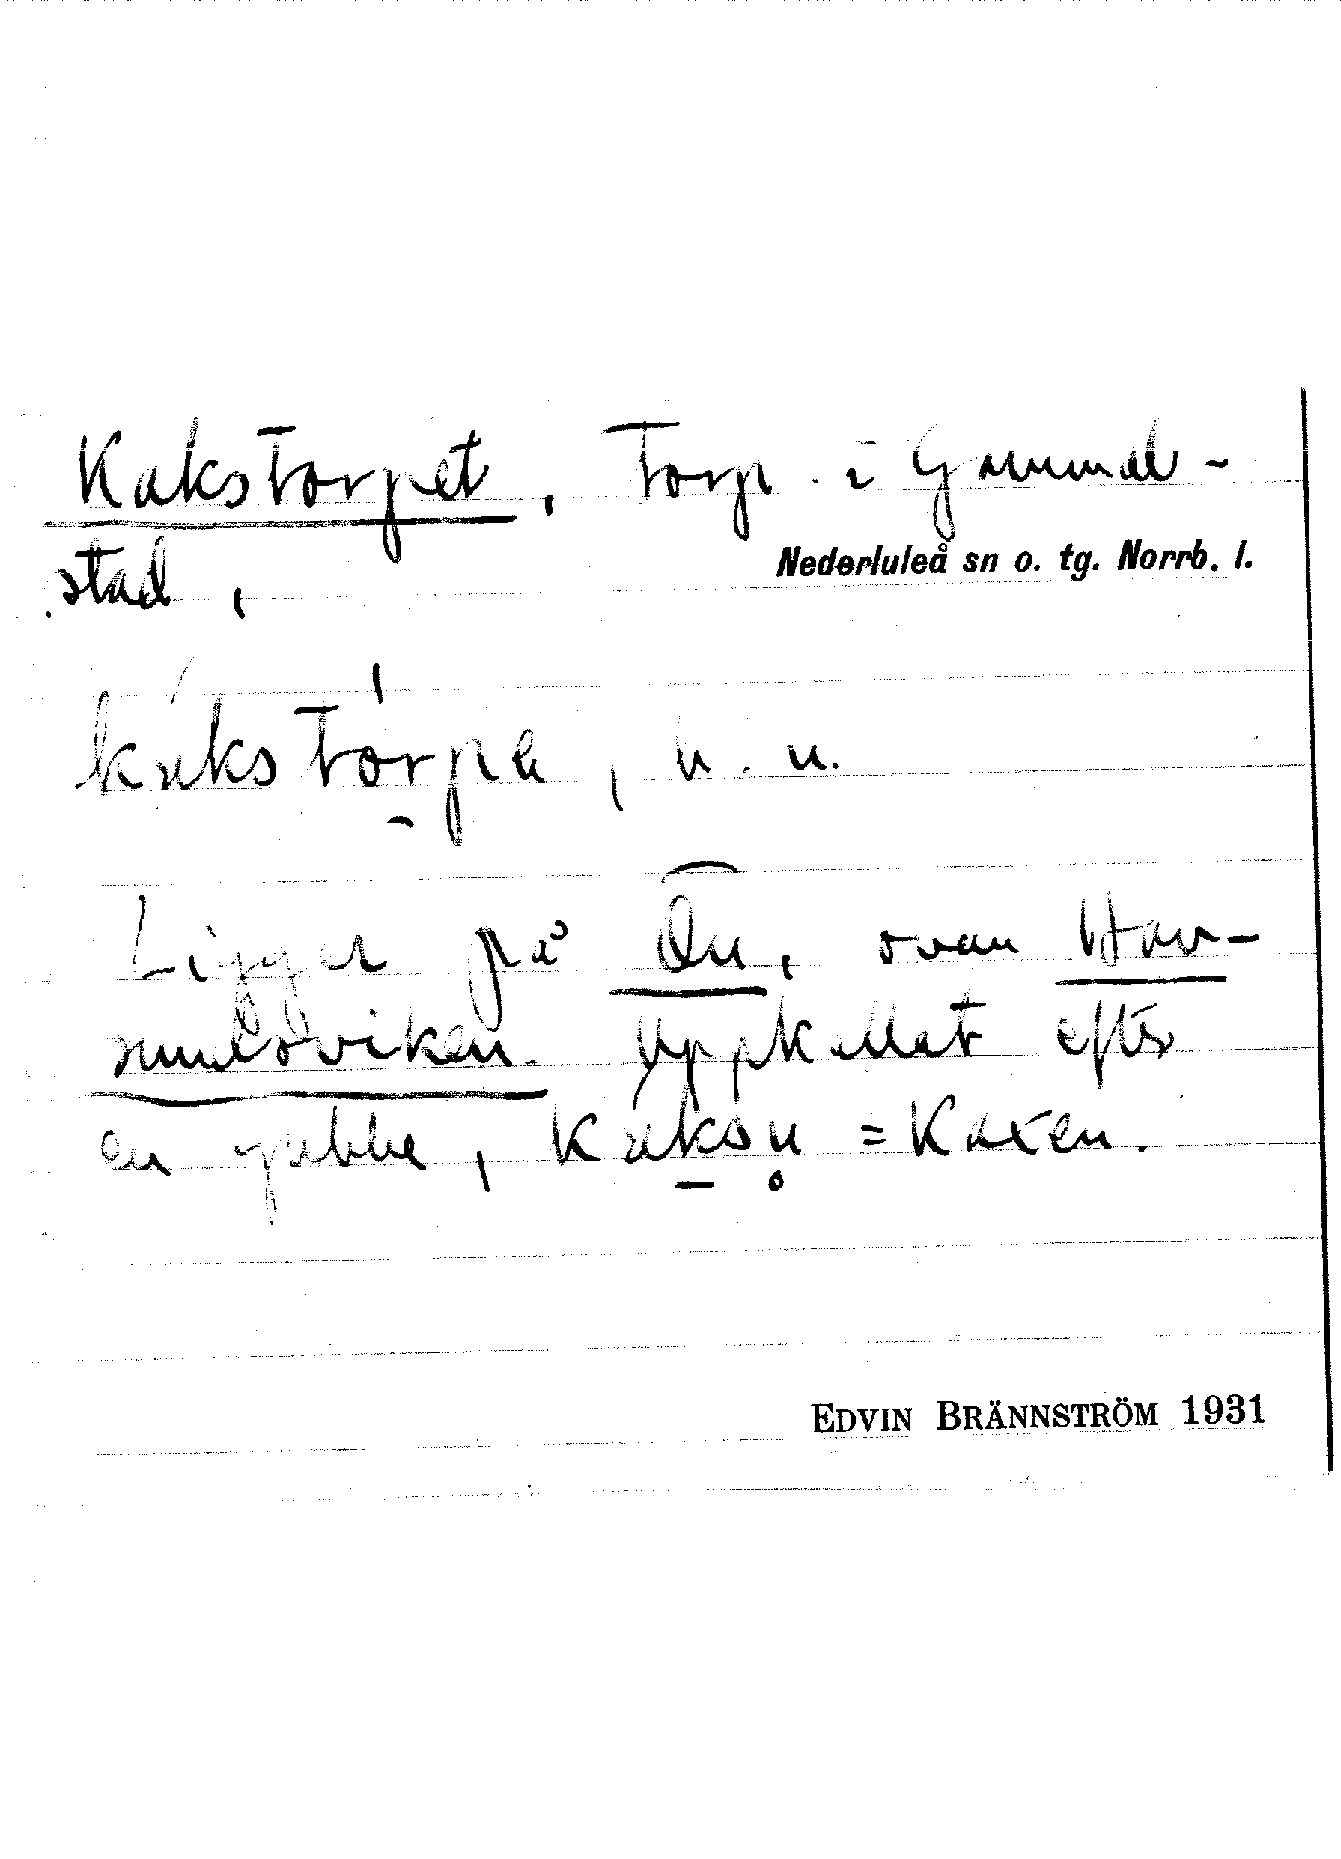 Kakstorpet, Torp i Gammel-
stad,
Nederluleå sn o. tg. Norrb. l.
kákstórpa, n. u.
Ligger på Ön, ovan Hav-
sundsviken. Uppkallat efter
en gubbe, Kaksn̥ = Kaxen.
EDVIN BRÄNNSTRÖM 1931